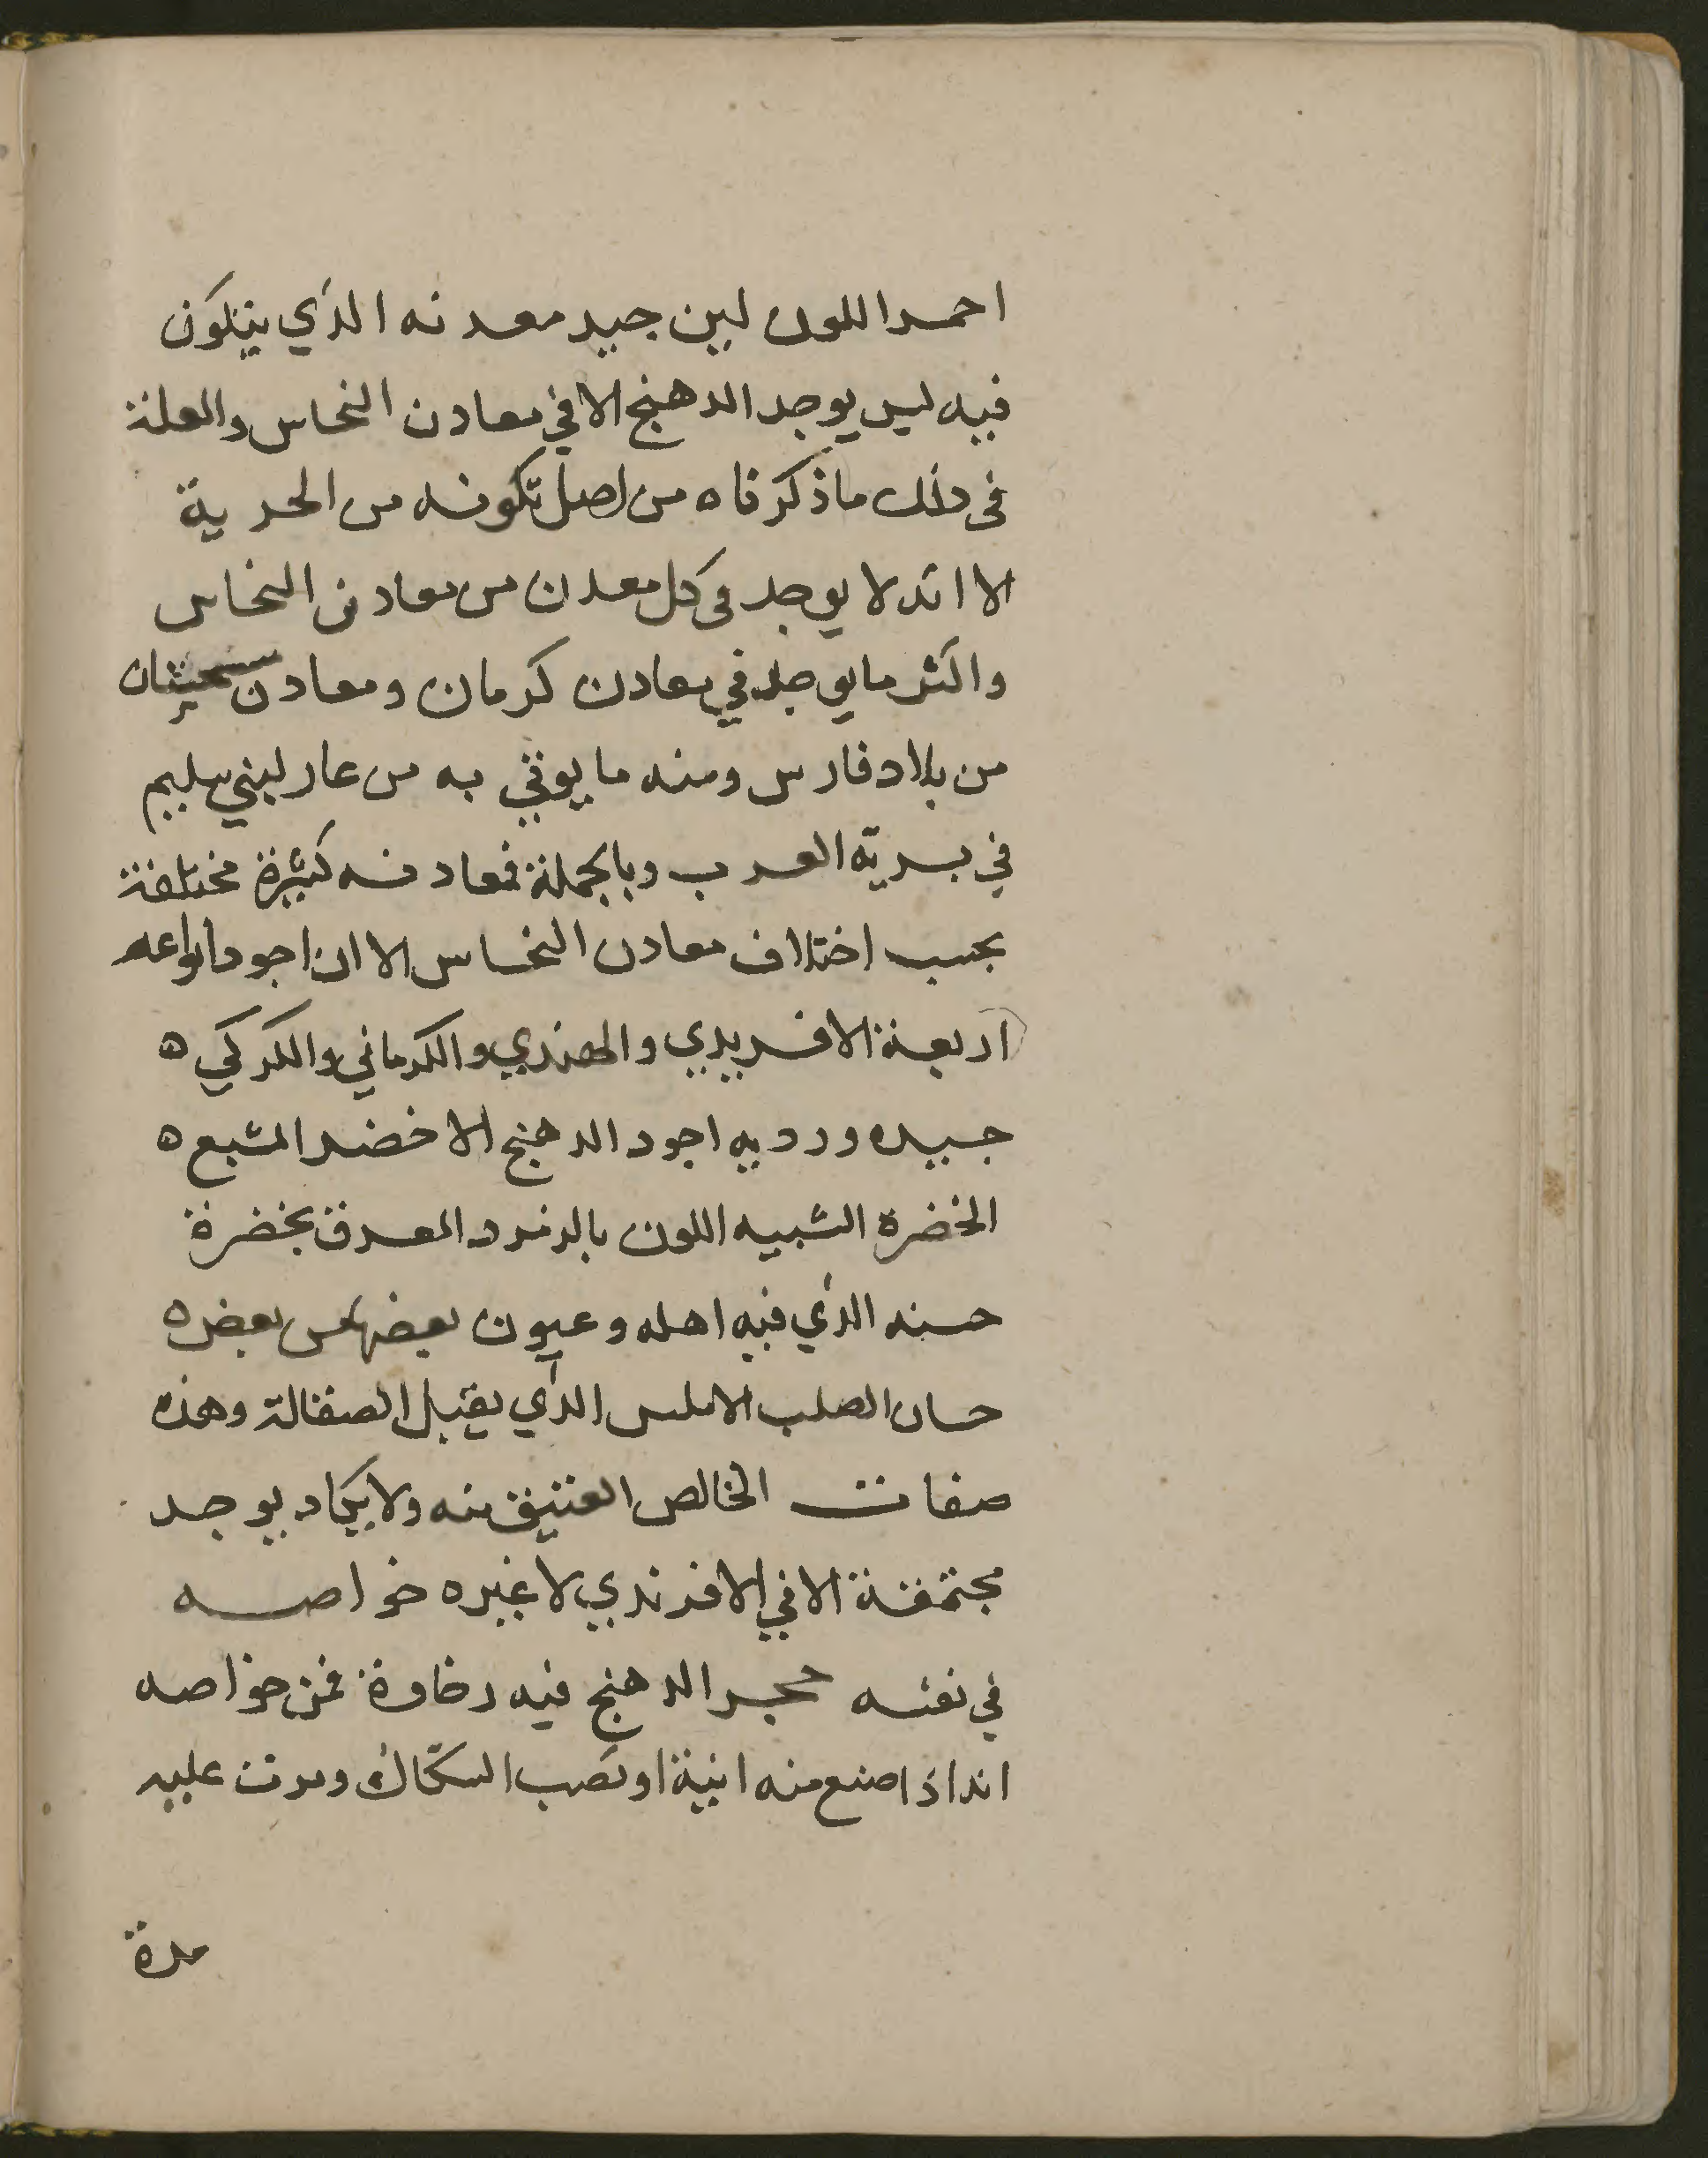 احمر اللون لين جيد معدنه الذي يتكون
فيه ليس يوجد الدهنج الا في معادن النحاس والعلة
في ذلك ما ذكرناه من اصل تكونه من الحدية
الا انه لا يوجد في كل معدن من معادن النحاس
واكثر ما يوجد في معادن كرمان ومعادن سجستان
من بلاد فارس ومنه ما يوتي به من غار لبني سليم
في برية العرب وبالجملة فمعادنه كثيرة مختلفة
بحسب اختلاف معادن النحاس الا ان اجود انواعه
اربعة الافريدي والهندي والكرماني والكركي ه
جيده ورديه اجود الدهنج الاخضر المشبع ه
الخضرة الشبيه اللون بالزمرد المعرق بخضرة
حسنه الذي فيه اهله وعيون بعضها من بعض ه
حسان الصلب الاملس الذي يقبل الصقالة وهذه
صفات الخالص العتيق منه ولا يكاد يوجد
مجتمعة الا في الافرندي لا غيره خواصه
في نفسه حجر الدهنج فيه رخاوة فمن خواصه
انه اذا صنع منه انية او نصب السكاك ومرت عليه
مدة